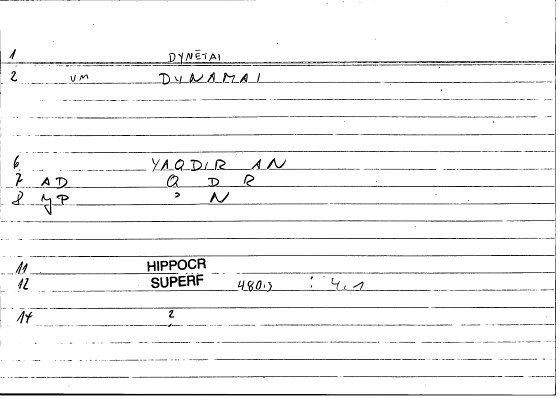 1 DYNĒTAI
2 VM DYNAMAI
6 YAQDIR AN
7 AD Q D R
8 JP ʾ N
11 HIPPOCR
12 SUPERF 480,3 : 4,1
14 2